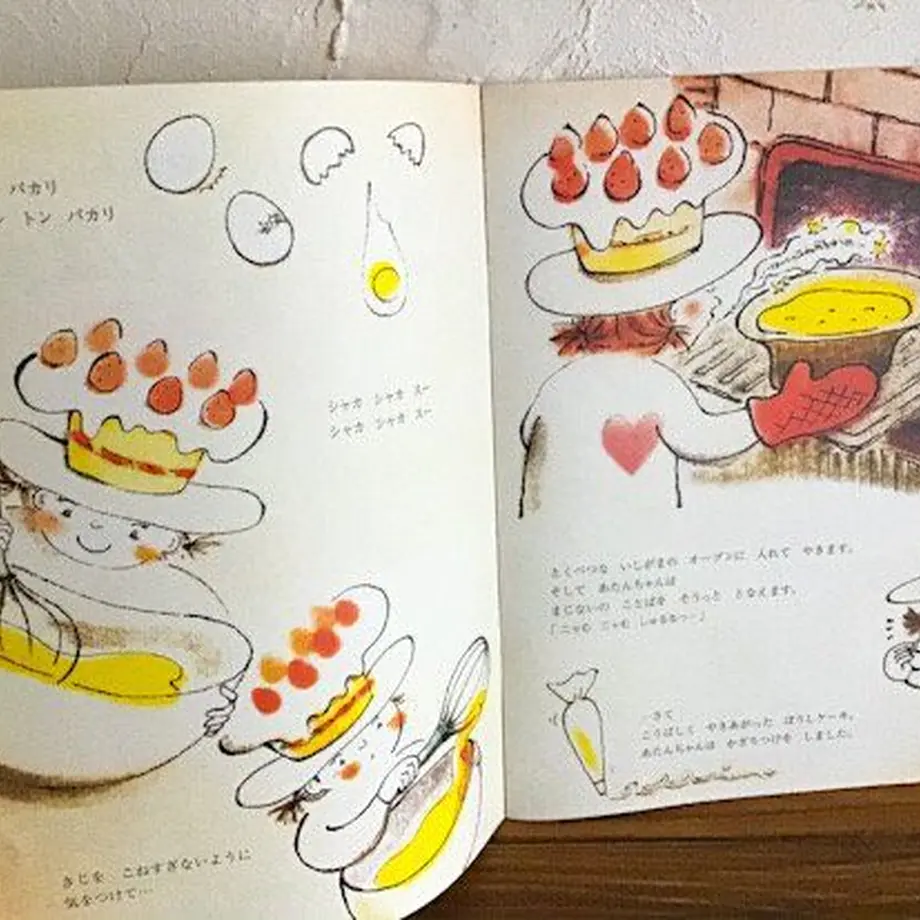 パカリ
トン パカリ
シャカ シャカ スー
シャカ シャカ スー
きじを こねすぎないように
気をつけて…
とくべつな いしがまの オーブンに 入れて やきます。
そして あたんちゃんは
まじないの ことばを そうっと となえます。
「ニャむ ニャむ しゅるなっー」
さて
こうばしく やきあがった ぼうしケーキ。
あたんちゃんは かざりつけを しました。